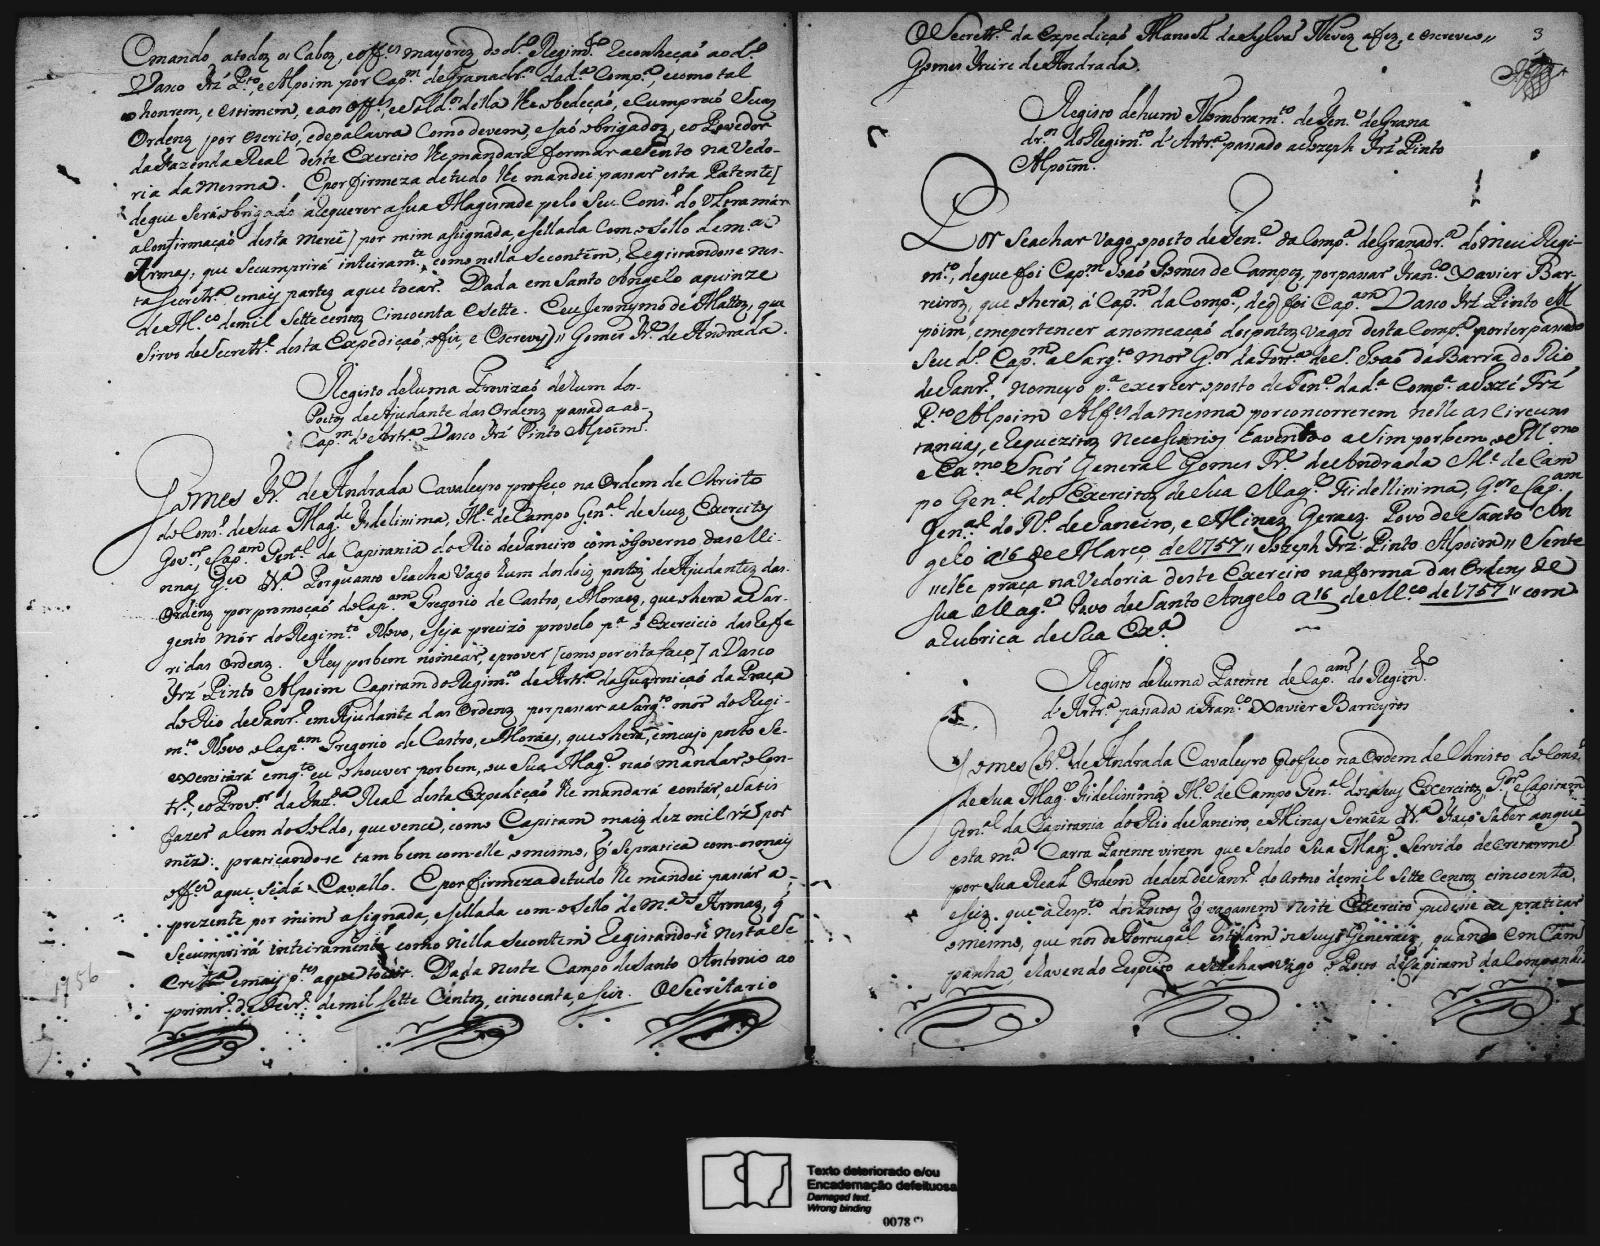 Cmando atodoz os Caboz, e off.es mayorez do d.o Regim.to Reconheçaó ao d.o
Vasco Frz' P.to, e Alpoim por Cap.m de Granadr.os da d.a Comp.a, e como tal
o honrem, e estimem, e aos off.es, e Sold.os della lhe obedeçaó, e Cumpraó Suas
Ordenz por escrito, e de palavra Como devem, e saó obrigadoz, e o Provedor
da Fazenda Real deste Exercito lhe mandará formar asento na Vedo-
ria da mesma. E por firmeza de tudo lhe mandei passar esta Patente [
de que Será obrigado a Requerer a Sua Magestade pelo Seu Cons.o do Ultramar
a Confirmaçaó desta merce ] por mim asignada, e Sellada Com o Sello de m.as
Armas, que Se cumprirá inteiram.te como nella se contem, Registandose nes-
ta Secretr.a e mais partez a que tocar. Dada em Santo Angelo a quinze
de M.co de mil Sette centoz Cincoenta e Sette. E eu Jeronymo de Mattoz, que
Sirvo de Secretr.o desta Expediçaó o fiz, e Escrevy )) Gomes Fr.e de Andrada.
Registo de huma Provizaó de hum dos
Postoz de Ajudante das Ordenz passada ao
Cap.m de Artr.a Vasco Frz' Pinto Alpoim.
Gomes Fr.e de Andrada Cavaleyro profeço na Ordem de Christo
do Cons.o de Sua Mag.de Fidelisima, M.e de Campo Gen.al de Seuz Exercitoz
Gov.or, e Cap.am Gen.al da Capitania do Rio de Janeiro com o Governo das Mi-
nnas G.ez &.a Porquanto Se acha Vago hum dos doiz postoz de Ajudantez das
Ordenz por promoçaó do Cap.am Gregorio de Castro, e Moraez, que o hera a Sar-
gento mór do Regim.to Novo, e seja precizo provelo p.a o Exercicio das Refe
ridas Ordenz. Hey por bem nomear, e prover [como por esta faço] a Vasco
Frz' Pinto Alpoim Capitam do Regim.to de Artr.a da Guarniçaó da Praça
do Rio de Janr.o em Ajudante das Ordenz por passar a Sarg.to mór do Regi-
m.to Novo o Cap.am Gregorio de Castro, e Moraes, que o hera, em cujo posto Se
exercitará emq.to eu o houver por bem, ou Sua Mag.e naó mandar o Con-
tr.o, e o Prov.or da Faz.da Real desta Expediçaó lhe mandará contar, e Satis
fazer alem do Soldo, que vence, como Capitam maiz dez mil rz' por
mez: praticando-se tambem com elle o mesmo, q' Se pratica com os mais
off.es a que se dá Cavallo. E por firmeza de tudo lhe mandei passar a
prezente por mim asignada, e Sellada com o Sello de m.as Armaz, q'
Se cumprirá inteiramente como nella Se contem Registando-se nesta Se
cretr.a e mais p.tes a que tocar. Dada neste Campo de Santo Antonio ao
primr.o de Fevr.o de mil Sette Centoz, cincoenta, e Seis. O Secretario
1756
3
O Secretr.o da Expediçaó Manoel da Sylva Nevez a fez, e escreveo //
Gomes Freire de Andrada.
Registo de hum Nombram.to de Ten.e de Grana
dr.os do Regim.to d' Artr.a passado a Jozeph Frz' Pinto
Alpoim.
Por Se achar Vago o posto de Ten.e da Comp.a de Granadr.os do meu Regi-
m.to, de que foi Cap.m Joaó Gomes de Campoz, por passar Fran.co Xavier Bar-
reiroz, que o hera, á Cap.m da Comp.a, de q' foi Cap.am Vasco Frz' Pinto Al
poim, e me pertencer a nomeaçaó dos postoz vagos desta Comp.a por ter passado
Seu d.o Cap.m a Sarg.to Mor G.or da Fort.a de S. Joaó da Barra do Rio
de Janr.o, Nomeyo p.a exercer o posto de Ten.e da d.a Comp.a a Jozé Frz'
P.to e Alpoim Alf.es da mesma por concorrerem nelle as Circuns
tancias, e Requezitoz Necessarios e avendo o asim por bem o Ill.mo
e Ex.mo Snór General Gomes Fr.e de Andrada M.e de Cam
po Gen.al dos Exercitoz de Sua Mag.e Fidellissima, G.or e Cap.am
Gen.al do R.o de Janeiro, e Minaz Geraez. Povo de Santo An
gelo a 16 de Março de 1757 // Jozeph Frz' Pinto Alpoim // Sente
selhe praça na Vedoria deste Exercito na forma das Ordens de
Sua Mag.e Povo de Santo Angelo a 16 de M.co de 1757 // com
a Rubrica de Sua Ex.a
Registo de huma Patente de Cap.am do Regim.to
d' Artr.a passada a Fran.co Xavier Barreyros
Gomes Fr.e de Andrada Cavaleyro Profeço na Ordem de Christo do Cons.o
de Sua Mag.e Fidelisima M.e de Campo Gen.al dos Seus Exercitoz G.or e Capitam
Gen.al da Capitania do Rio de Janeiro, e Minas Geraez &.a Faço Saber aos que
esta m.a Carta Patente virem que Sendo Sua Mag.e Servido decretarme
por Sua Real Ordem de dez de Janr.o do Anno de mil Sette Centoz cincoenta,
e Seiz que a resp.to dos Postos q' vagassem neste Exercito pudesse eu praticar
o mesmo, que nos de Portugal estillam os Seus Generais, quando em Cam
panha, e havendo Respeito a Se achar Vago o Posto de Capitam da Companhia
Texto deteriorado e/ou
Encadernação defeituosa
Damaged text.
Wrong binding
0078 (*)